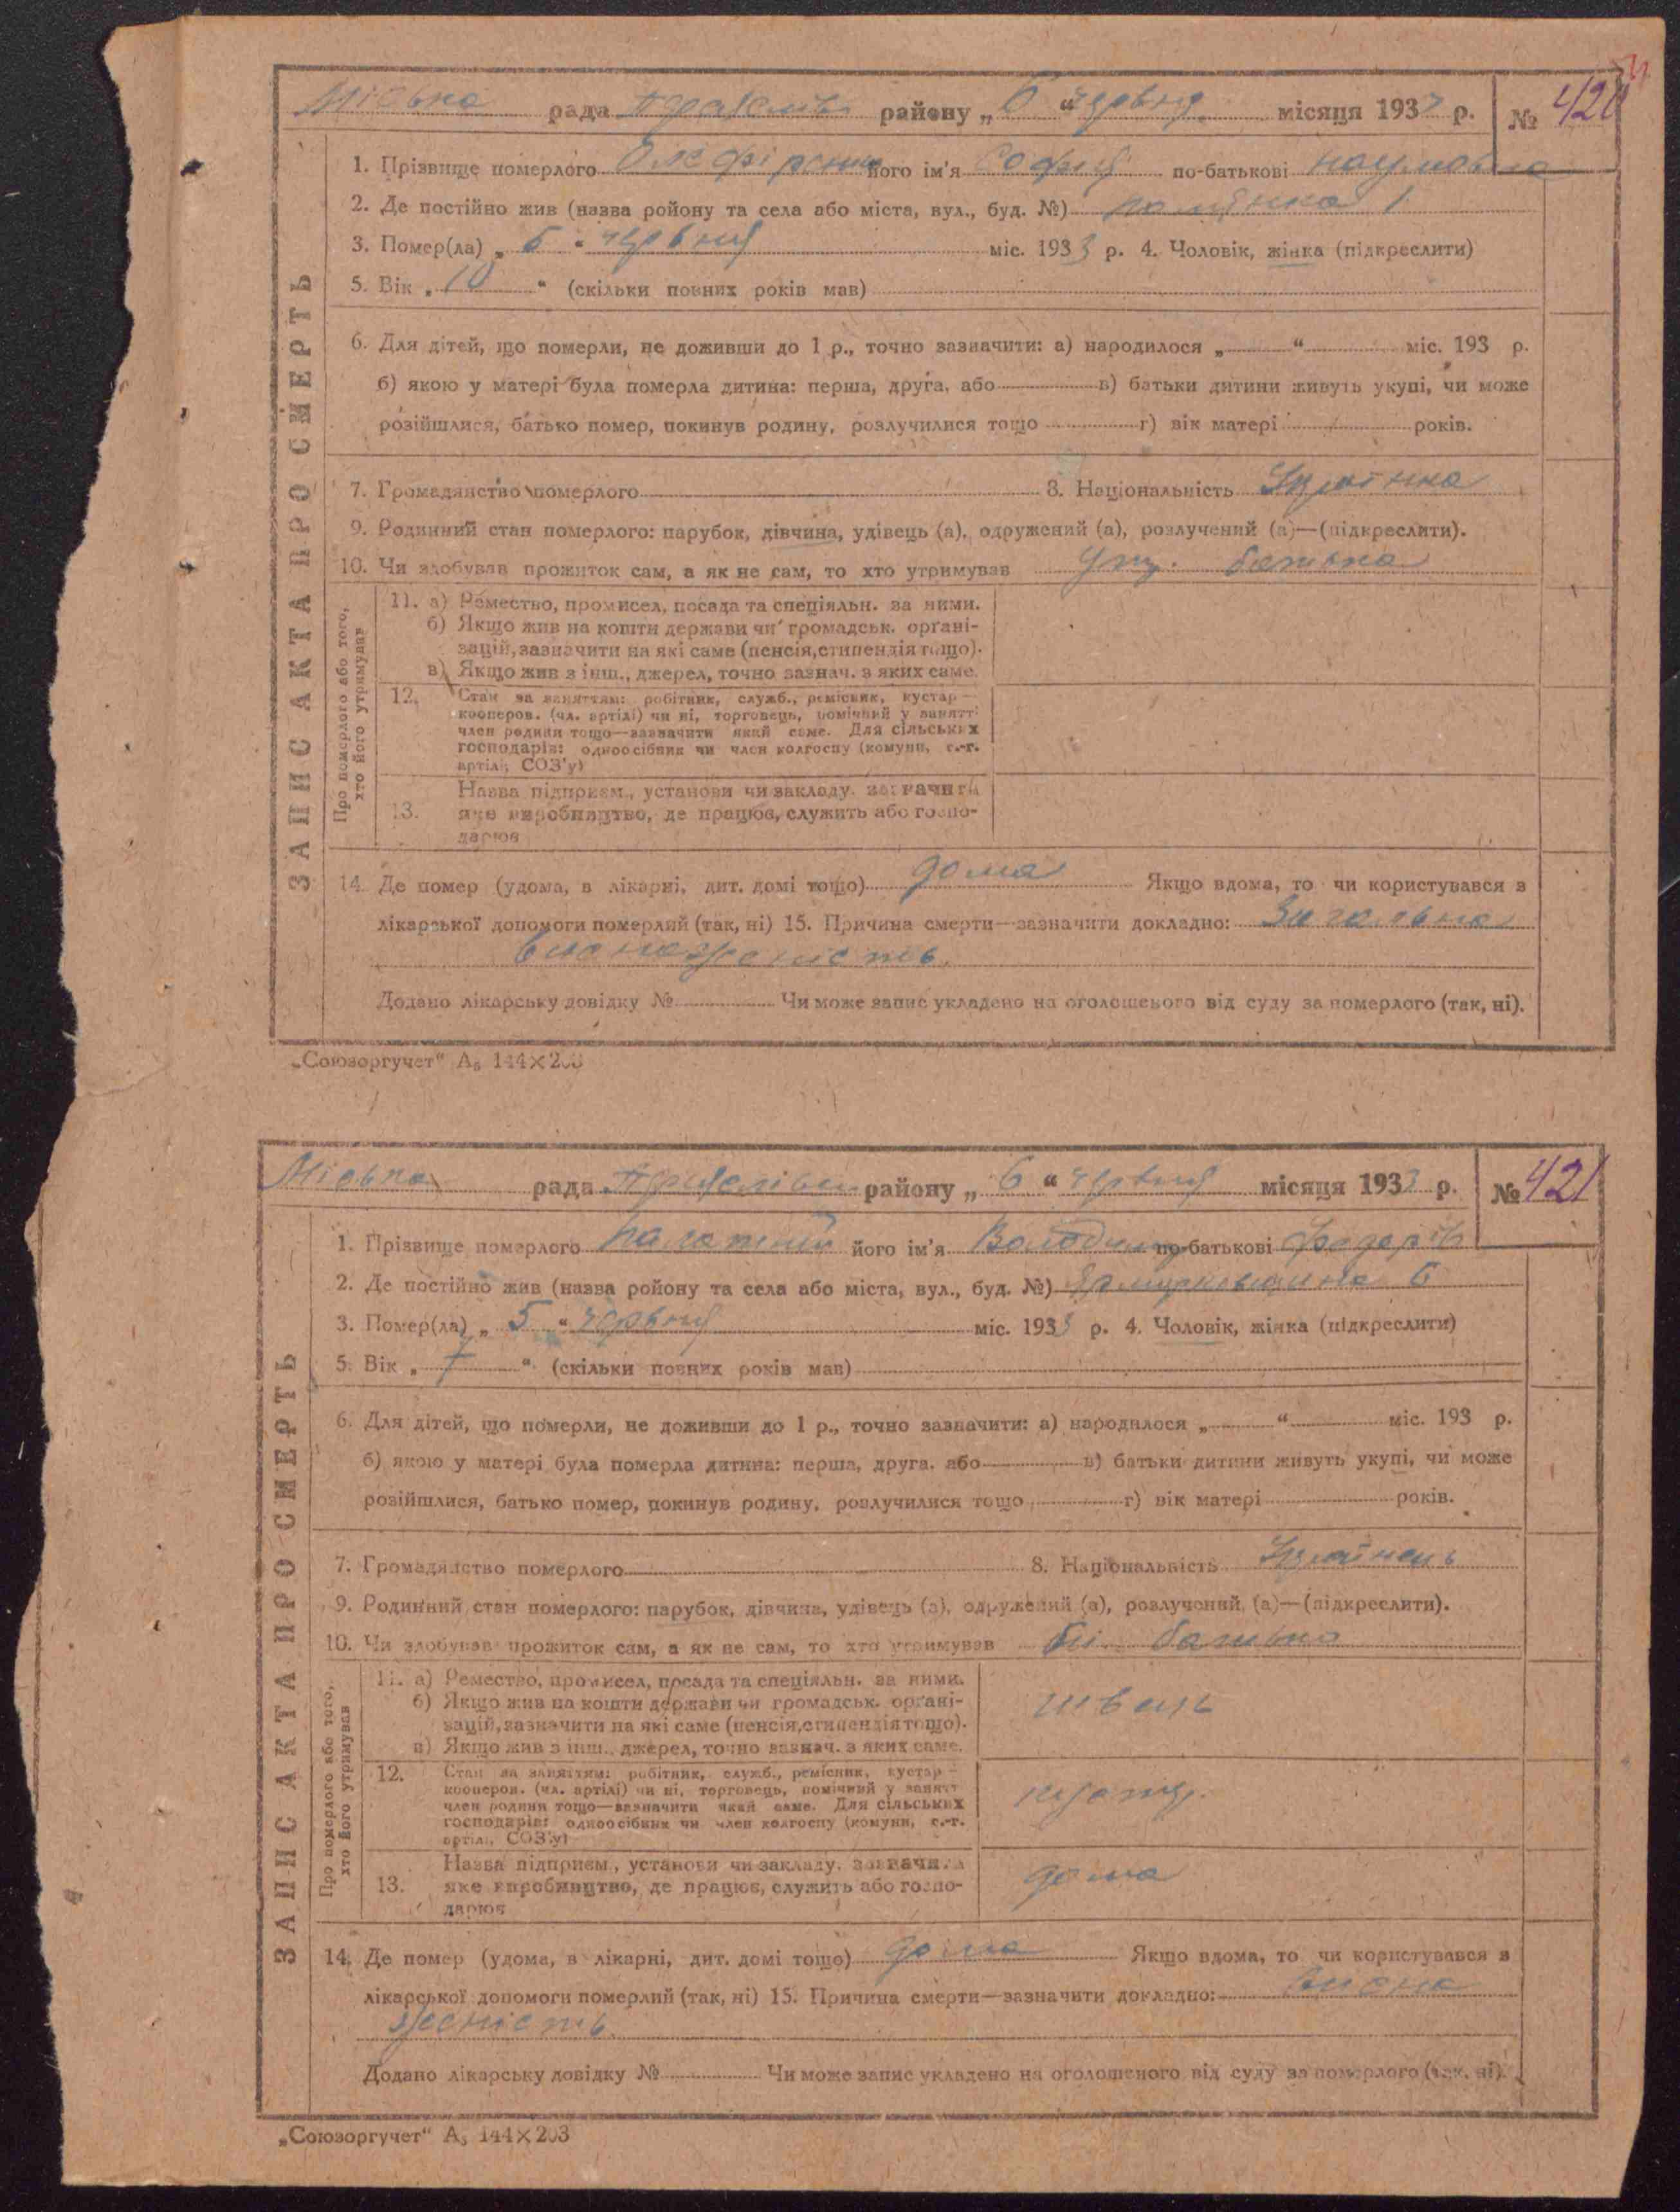 Міська рада район у „6“ червня місяця 1933 р. № 420
1. Прізвище померлого його ім'я Софія по-батькові Наумовна
2. Де постійно жив (назва ройону та села або міста, вул., буд. №) 1
3. Помер(ла) „ 5 “ червня міс. 1933 р. 4. Чоловік, жінка (підкреслити)
5. Вік „ 10 “ (скільки повних років мав)
6. Для дітей, що померли, не доживши до 1 р., точно зазначити: а) народилося „ “ міс. 193 р.
б) якою у матері була померла дитина: перша, друга, або в) батьки дитини живуть укупі, чи може
розійшлися, батько помер, покинув родину, розлучилися тощо г) вік матері років.
7. Громадянство померлого 8. Національність Українка
9. Родинний стан померлого: парубок, дівчина, удівець (а), одружений (а), розлучений (а)—(підкреслити).
10. Чи здобував прожиток сам, а як не сам, то хто утримував утр. батько
11. а) Ремество, промисел, посада та спеціяльн. за ними.
б) Якщо жив на кошти держави чи громадськ. орґані-
зацій, зазначити на які саме (пенсія, стипендія тощо).
в) Якщо жив з інш., джерел, точно зазнач. з яких саме.
12. Стан за заняттям: робітник, служб., ремісник, кустар —
кооперов. (чл. артілі) чи ні, торговець, помічний у занятт
член родини тощо—зазначити який саме. Для сільських
господарів: одноосібник чи член колгоспу (комуни, с.-г.
артілі, СОЗ'у)
Назва підприєм., установи чи закладу, зазначити
13. яке виробництво, де працює, служить або госпо-
дарює
14. Де помер (удома, в лікарні, дит. домі тощо) дома Якщо вдома, то чи користувався з
лікарської допомоги померлий (так, ні) 15. Причина смерти—зазначити докладно: Загальна
виснаженість
Додано лікарську довідку № Чи може запис укладено на оголошеного від суду за померлого (так, ні).
ЗАПИС АКТА ПРО СМЕРТЬ
Про померлого або того,
хто його утримував
„Союзоргучет“ А₅ 144×203
Міська рада району „ 6 “ червня місяця 1933 р. № 421
1. Прізвище померлого його ім'я Володимир по-батькові Федорів
2. Де постійно жив (назва ройону та села або міста, вул., буд. №) Ярмирковщина 6
3. Помер(ла) „ 5 “ червня міс. 1933 р. 4. Чоловік, жінка (підкреслити)
5. Вік „ 7 “ (скільки повних років мав)
6. Для дітей, що померли, не доживши до 1 р., точно зазначити: а) народилося „ “ міс. 193 р.
б) якою у матері була померла дитина: перша, друга, або в) батьки дитини живуть укупі, чи може
розійшлися, батько помер, покинув родину, розлучилися тощо г) вік матері років.
7. Громадянство померлого 8. Національність Українець
9. Родинний стан померлого: парубок, дівчина, удівець (а), одружений (а), розлучений (а)—(підкреслити).
10. Чи здобував прожиток сам, а як не сам, то хто утримував батько
11. а) Ремество, промисел, посада та спеціяльн. за ними.
б) Якщо жив на кошти держави чи громадськ. орґані-
зацій, зазначити на які саме (пенсія, стипендія тощо).
в) Якщо жив з інш., джерел, точно зазнач. з яких саме.
швець
12. Стан за заняттям: робітник, служб., ремісник, кустар —
кооперов. (чл. артілі) чи ні, торговець, помічний у занятт
член родини тощо—зазначити який саме. Для сільських
господарів: одноосібник чи член колгоспу (комуни, с.-г.
артілі, СОЗ'у)
Назва підприєм., установи чи закладу, зазначити
13. яке виробництво, де працює, служить або госпо-
дарює
дома
14. Де помер (удома, в лікарні, дит. домі тощо) дома Якщо вдома, то чи користувався з
лікарської допомоги померлий (так, ні) 15. Причина смерти—зазначити докладно: висна
женість
Додано лікарську довідку № Чи може запис укладено на оголошеного від суду за померлого (так, ні).
ЗАПИС АКТА ПРО СМЕРТЬ
Про померлого або того,
хто його утримував
„Союзоргучет“ А₅ 144×203